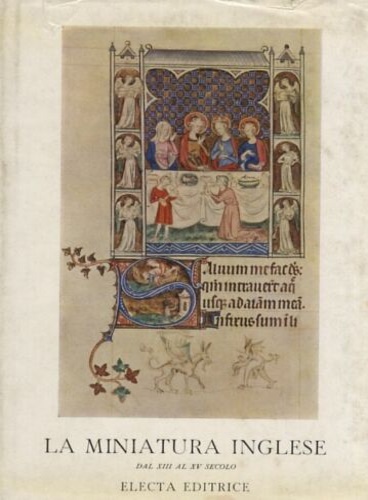 Saluum me fac ds̄:
qm̄ intrauerūt aq̄
usq; ad aīam meā.
Infixus sum ī li
LA MINIATURA INGLESE
DAL XIII AL XV SECOLO
ELECTA EDITRICE